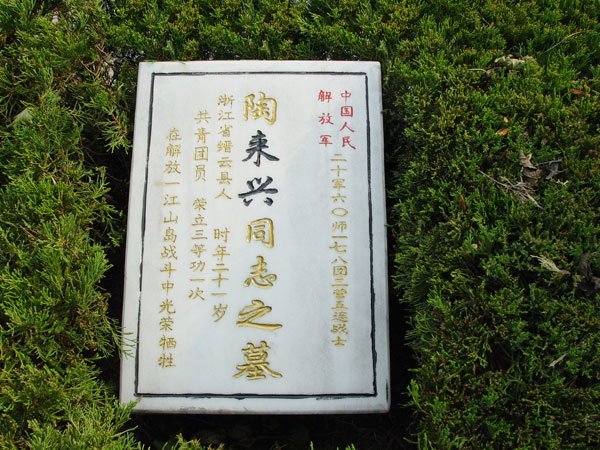 中国人民
解放军
二十军六〇师一七八团三营五连战士
陶来兴同志之墓
浙江省缙云县人 时年二十一岁
共青团员 荣立三等功一次
在解放一江山岛战斗中光荣牺牲